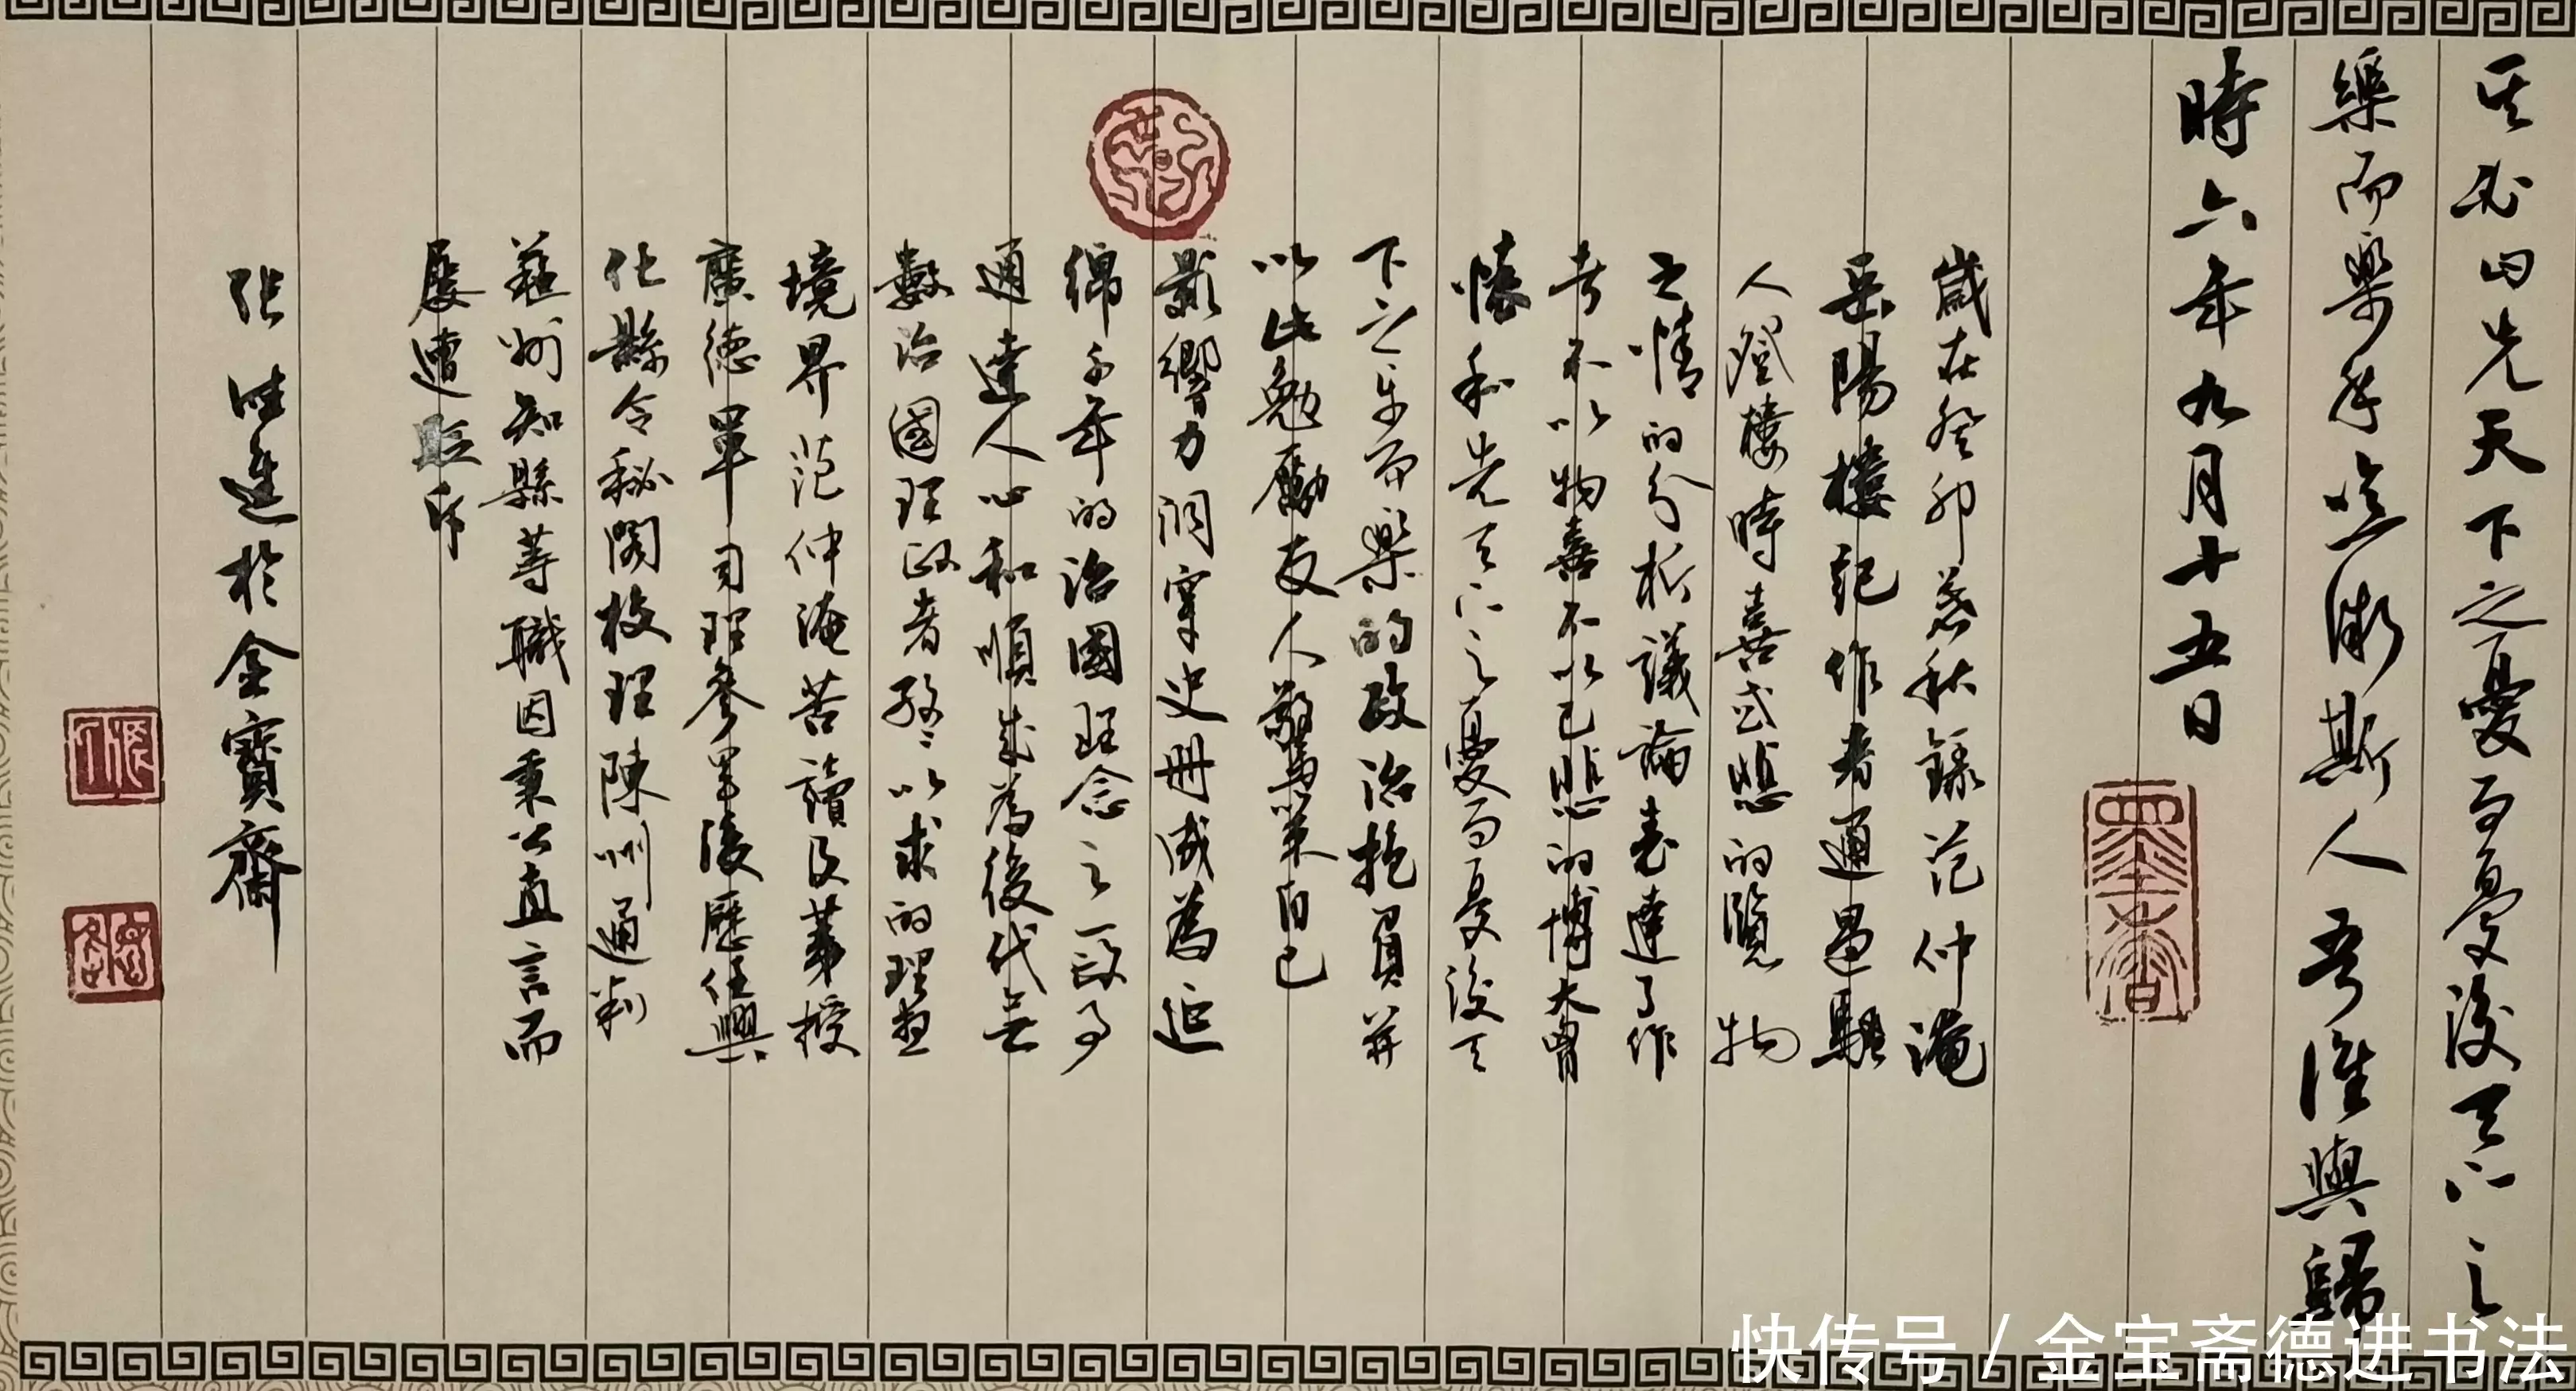 其必曰先天下之憂而憂後天下之
樂而樂乎噫微斯人吾誰與歸
時六年九月十五日
歲在癸卯暮秋錄范仲淹
岳陽樓記作者通過騷
人登樓時喜或悲的覽物
之情的分析議論表達了作
者不以物喜不以己悲的博大胸
懷和先天下之憂而憂後天
下之乐而樂的政治抱負并
以此勉勵友人警策自己
影響力洞穿史册成為近
綿千年的治國理念之一段了
通達人心和順成為後代無
數治國理政者孜孜以求的理想
境界范仲淹苦讀及第授
廣德軍司理參軍後歷任興
化縣令秘閣校理陳州通判
蘇州知縣等職因秉公直言而
屢遭貶斥
張進於金寶齋
快传号 / 金宝斋德进书法